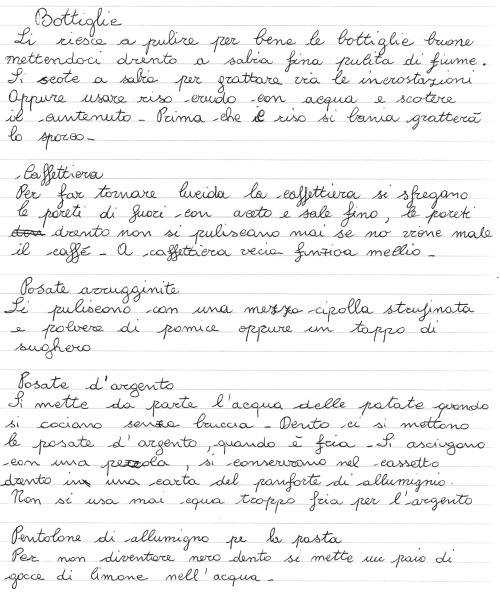 Bottiglie
Si riesce a pulire per bene le bottiglie buone
mettendoci drento a sabia fina pulita di fiume.
Si scote a sabia per grattare via le incrostazioni
Oppure usare riso crudo con acqua e scotere
il contenuto - Prima che il riso si bania gratterà
lo sporco -
Caffettiera
Per far tornare lucida la caffettiera si sfregano
le pareti di fuori con aceto e sale fino, le pareti
drento non si puliscano mai se no viene male
il caffé - A caffettiera vecia funzioa mellio -
Posate arrugginite
Si puliscono con una mezza cipolla strufinata
e polvere di pomice oppure un tappo di
sughero
Posate d'argento
Si mette da parte l'acqua delle patate quando
si cociano senza buccia - Dento ci si mettono
le posate d'argento, quando è fria - Si asciugano
con una pezzola, si conservano nel cassetto
drento in una carta del panforte di allumignio.
Non si usa mai equa troppo fria per l'argento
Pentolone di allumigno pe la pasta
Per non diventare nero dento si mette un paio di
gocce di limone nell'acqua -